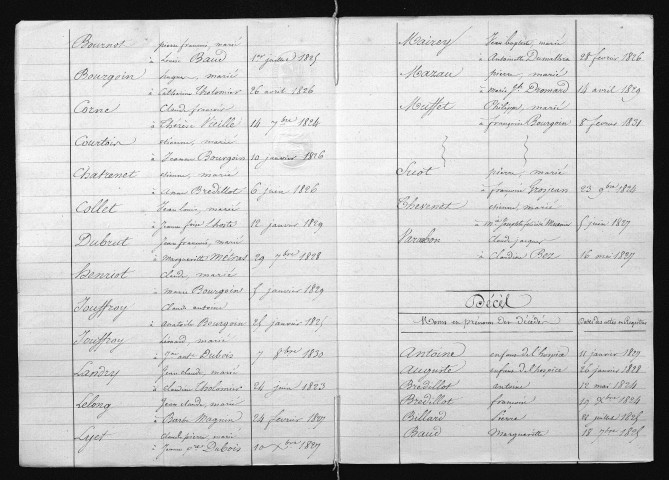 Bournot pierre francois, marié
à Louise Baud 1er juillet 1825
Bourgoin hugues, marié
à Catherine Tholomier 26 avril 1826
Corne Claude francois
à Thérèse Vieille 14 7bre 1824
Courtois etienne, marié
à Jeanne Bourgoin 10 janvier 1826
Chatrenet etienne, marié
à Anne Bredillot 6 juin 1826
Collet Jean louis, marié
à 12 janvier 1829
Dubrut jean francois, marié
à Marguerite 29 7bre 1828
Henriot claude, marié
à marie Bourgoin 5 janvier 1829
Jouffroy claude antoine
à Anatoile Bourgoin 25 janvier 1825
Jouffroy Léonard, marié
à Dubois 7 8bre 1830
Landry Jean claude, marié
à Claudine Tholomier 24 juin 1823
Lelong Jean claude, marié
à Barbe Magnin 24 fevrier 1827
Lyet claude pierre, marié
à Jeanne Dubois 10 Xbre 1827
Mairey Jean baptiste, marié
à Antoinette 28 fevrier 1826
Mazau pierre, marié
à marie Jh Dromard 14 avril 1829
Muffet Philippe, marié
à françoise Bourgoin 8 fevrier 1831
pierre, marié
à francoise Grosjean 23 9bre 1824
Thevenot etienne, marié
à 5 juin 1827
claude jacques
à claudine Boz 16 mai 1827
Décès
Noms et prénoms des Décédés Dates des actes ou Registres
Antoine enfant de l'hospice 11 janvier 1827
Auguste enfant de l'hospice 26 janvier 1828
Bredillot antoine 12 mai 1824
Bredillot francoise 19 Xbre 1824
Billard Pierre 12 juillet 1825
Baud Marguerite 18 7bre 1825